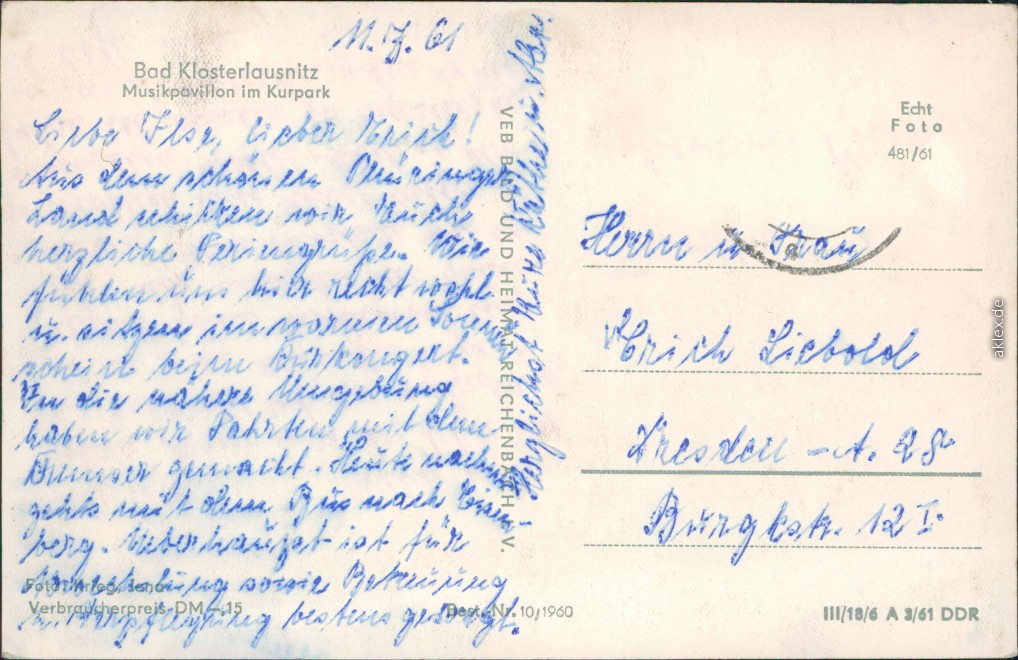 11. 7. 61
Bad Klosterlausnitz
Musikpavillon im Kurpark
Liebe Ilse, lieber Erich!
Aus dem schönen Thüringer
Land schicken wir Euch
herzliche Feriengrüße. Wir
fühlen uns hier recht wohl
u. sitzen im warmen Sonnen-
schein beim Kurkonzert.
In die nähere Umgebung
haben wir Fahrten mit dem
gemacht. Heute nachm.
gehts mit dem Bus nach Eisen-
berg. Ueberhaupt ist für
sowie Betreuung
u. Verpflegung bestens gesorgt.
Herzlichst Eure Käthe u.
VEB BILD UND HEIMAT REICHENBACH i. V.
Foto: Krieg, Jena
Verbraucherpreis DM -,15
Best.-Nr. 10/1960
Echt
Foto
481/61
Herrn u. Frau
Erich Liebold
Dresden - A. 28
Burgkstr. 12 I.
III/18/6 A 3/61 DDR
aklex.de